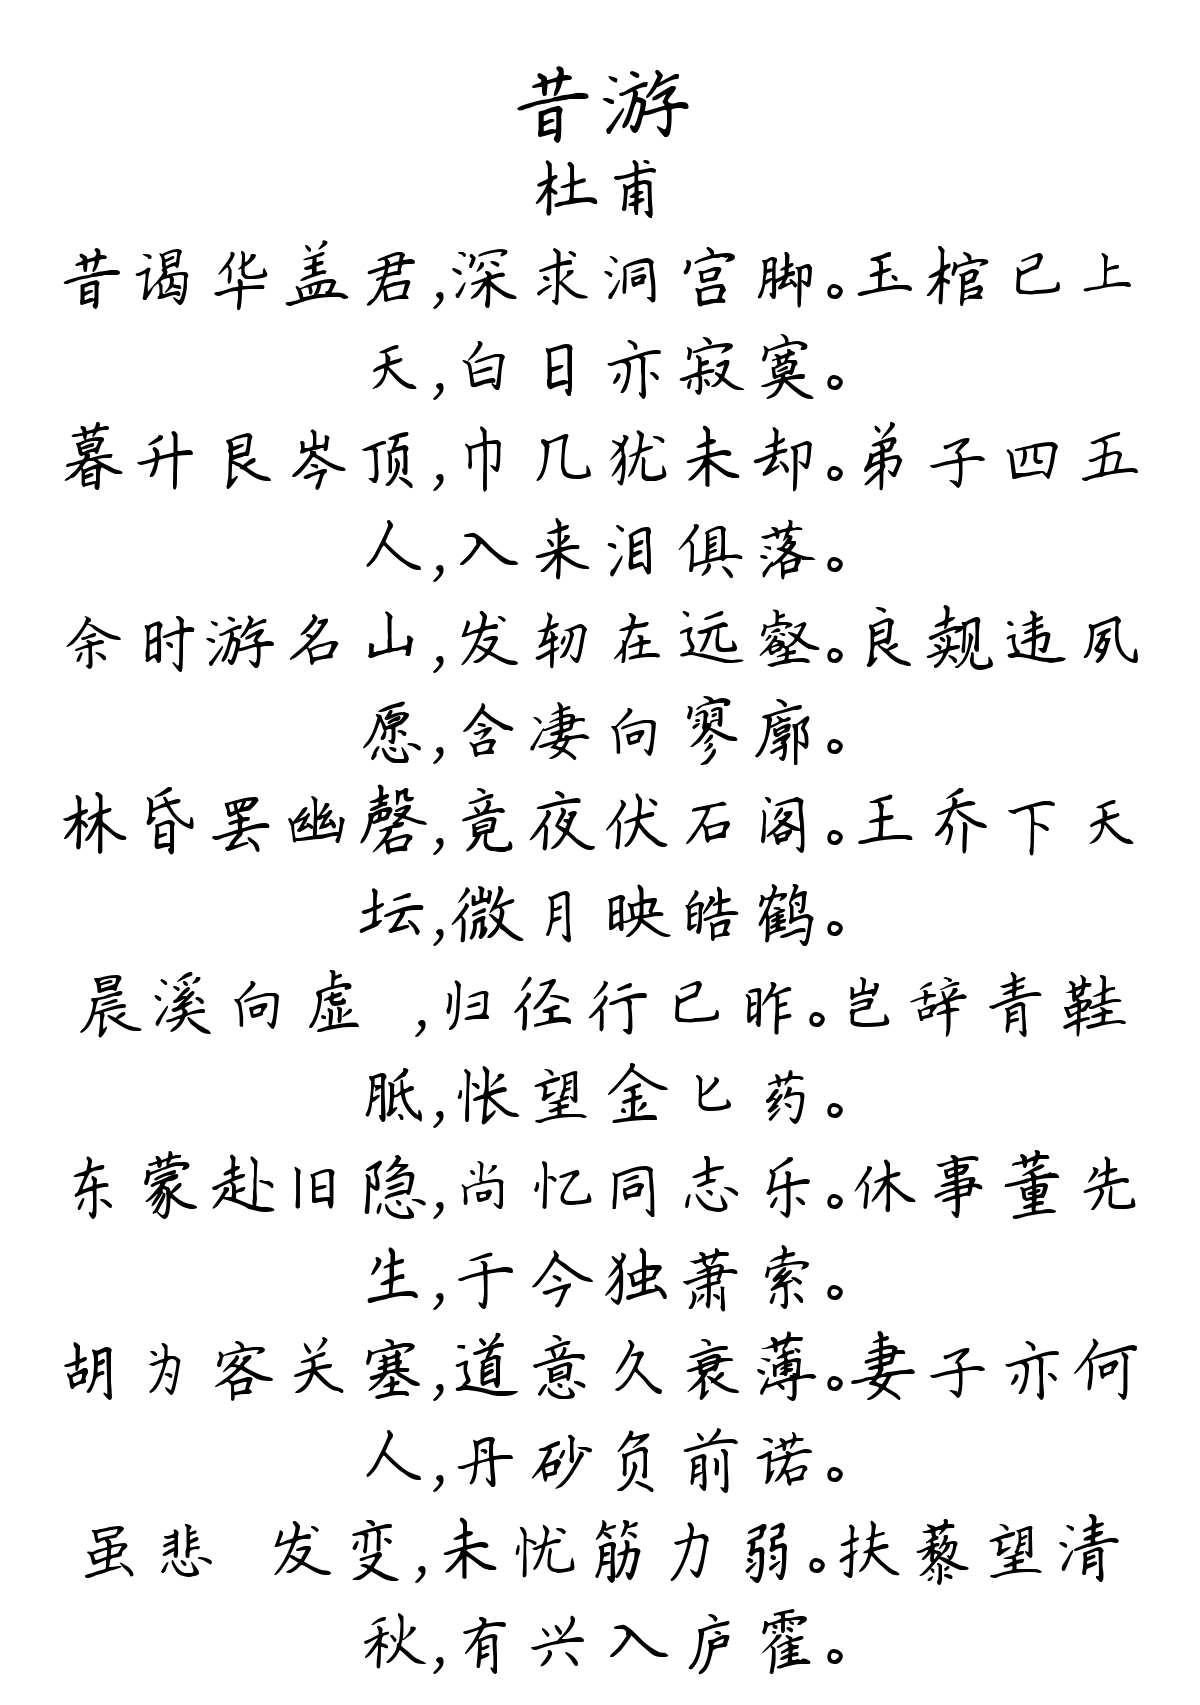 昔游
杜甫
昔谒华盖君,深求洞宫脚。玉棺已上
天,白日亦寂寞。
暮升艮岑顶,巾几犹未却。弟子四五
人,入来泪俱落。
余时游名山,发轫在远壑。良觌违夙
愿,含凄向寥廓。
林昏罢幽磬,竟夜伏石阁。王乔下天
坛,微月映皓鹤。
晨溪向虚 ,归径行已昨。岂辞青鞋
胝,怅望金匕药。
东蒙赴旧隐,尚忆同志乐。休事董先
生,于今独萧索。
胡为客关塞,道意久衰薄。妻子亦何
人,丹砂负前诺。
虽悲 发变,未忧筋力弱。扶藜望清
秋,有兴入庐霍。